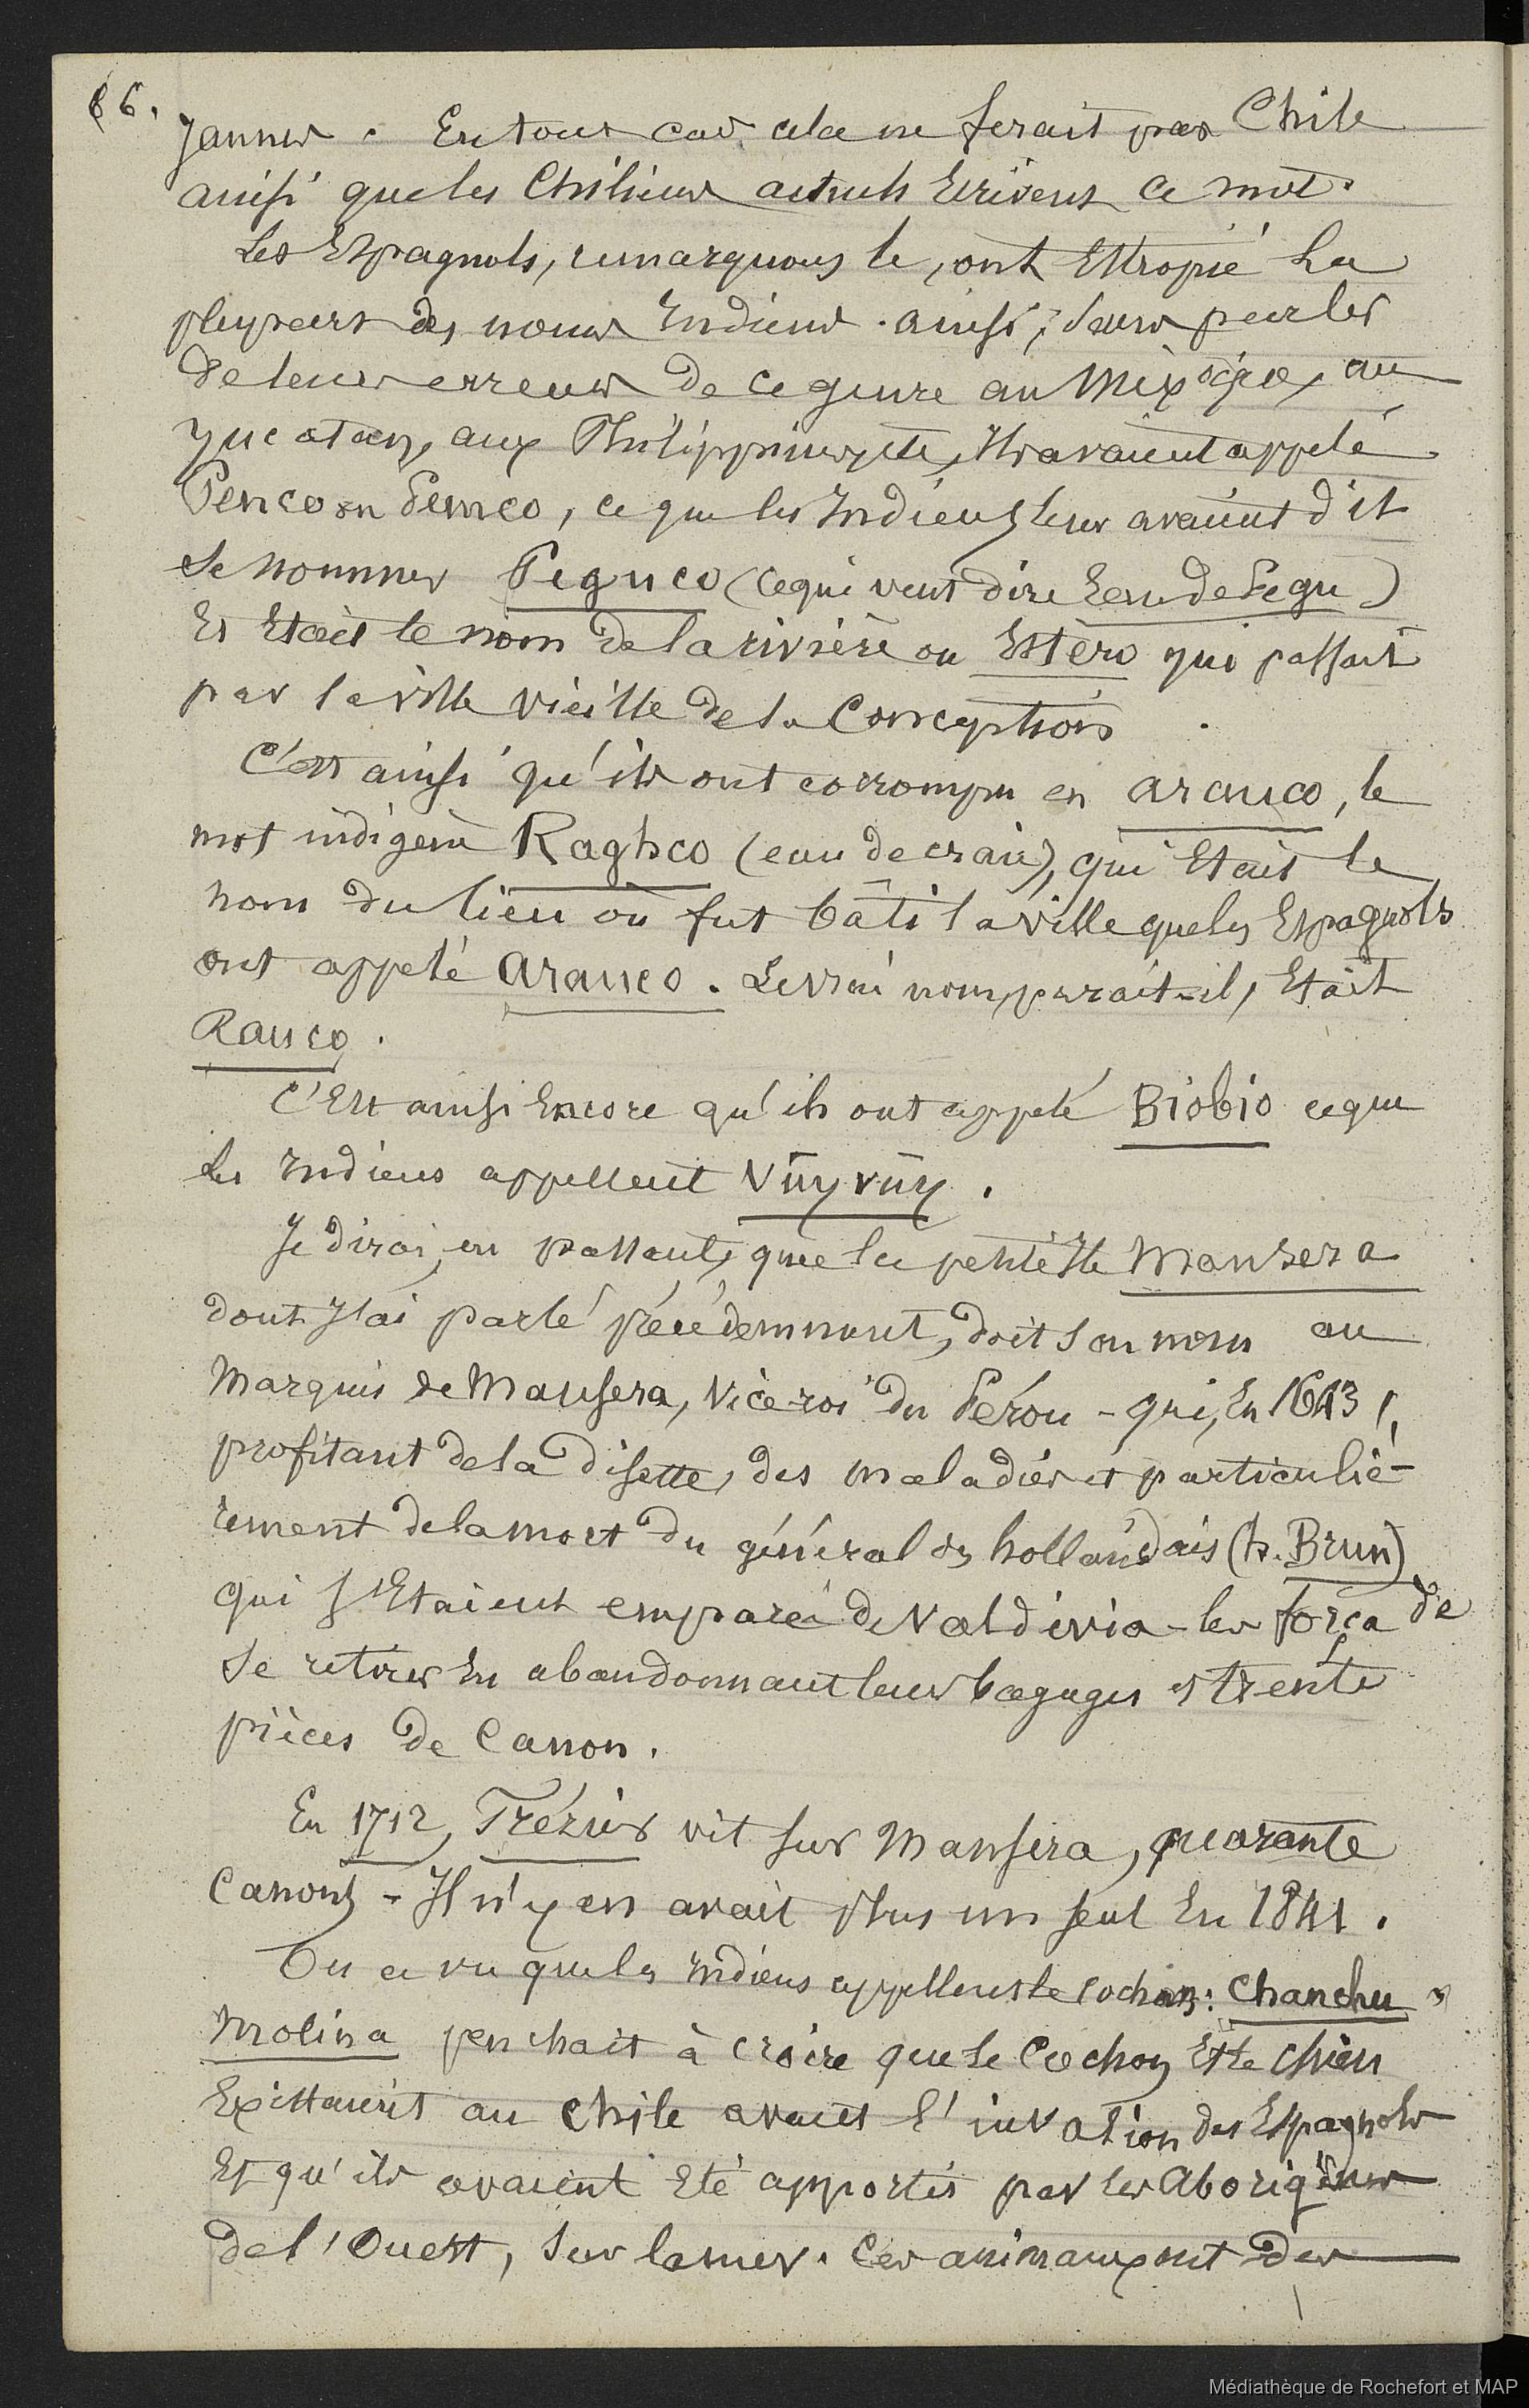 66.
jaunes. En tous cas cela ne serait pas Chile
ainsi que les Chiliens actuels écrivent ce mot.
Les Espagnols, remarquons le, ont estropié la
plupart des noms Indiens. ainsi, sans parler
de leurs erreurs de ce genre au Mexique, au
Yucatan, aux Philippines, etc, ils avaient appelé
Penco ou Pemco, ce que les Indiens leur avaient dit
se nommer Pegnco (ce qui veut dire Eau de Pegu)
Et était le nom de la rivière ou Estero qui passait
par la ville vieille de la Conception.
C'est ainsi qu'ils ont corrompu en arauco, le
mot indigène Raghco (eau de craie), qui était le
nom du lieu où fut bâti la ville que les Espagnols
ont appelé Arauco. Le vrai nom, parait-il, était
Rauco.
C'est ainsi encore qu'ils ont appelé Biobio ce que
les Indiens appellent Vüyvüy.
Je dirai, en passant, que la petite île Mansera
dont j'ai parlé précédemment, doit son nom au
Marquis de Mansera, Vice-roi du Pérou - qui, en 1643,
profitant de la disette, des maladies et particuliè-
rement de la mort du général des hollandais (h. Brun)
qui s'étaient emparés de Valdivia - les força de
se retirer en abandonnant leurs bagages et trente
pièces de Canon.
En 1712, Frézier vit sur Mansera, quarante
Canons - Il n'y en avait plus un seul en 1841.
On a vu que les Indiens appellent le cochon: Chanchu
Molina penchait à croire que le Cochon et le chien
existaient au Chile avant l'invation des Espagnols
Et qu'ils avaient été apportés par les Aborigènes
de l'Ouest, sur la mer. Ces animaux ont des
Médiathèque de Rochefort et MAP